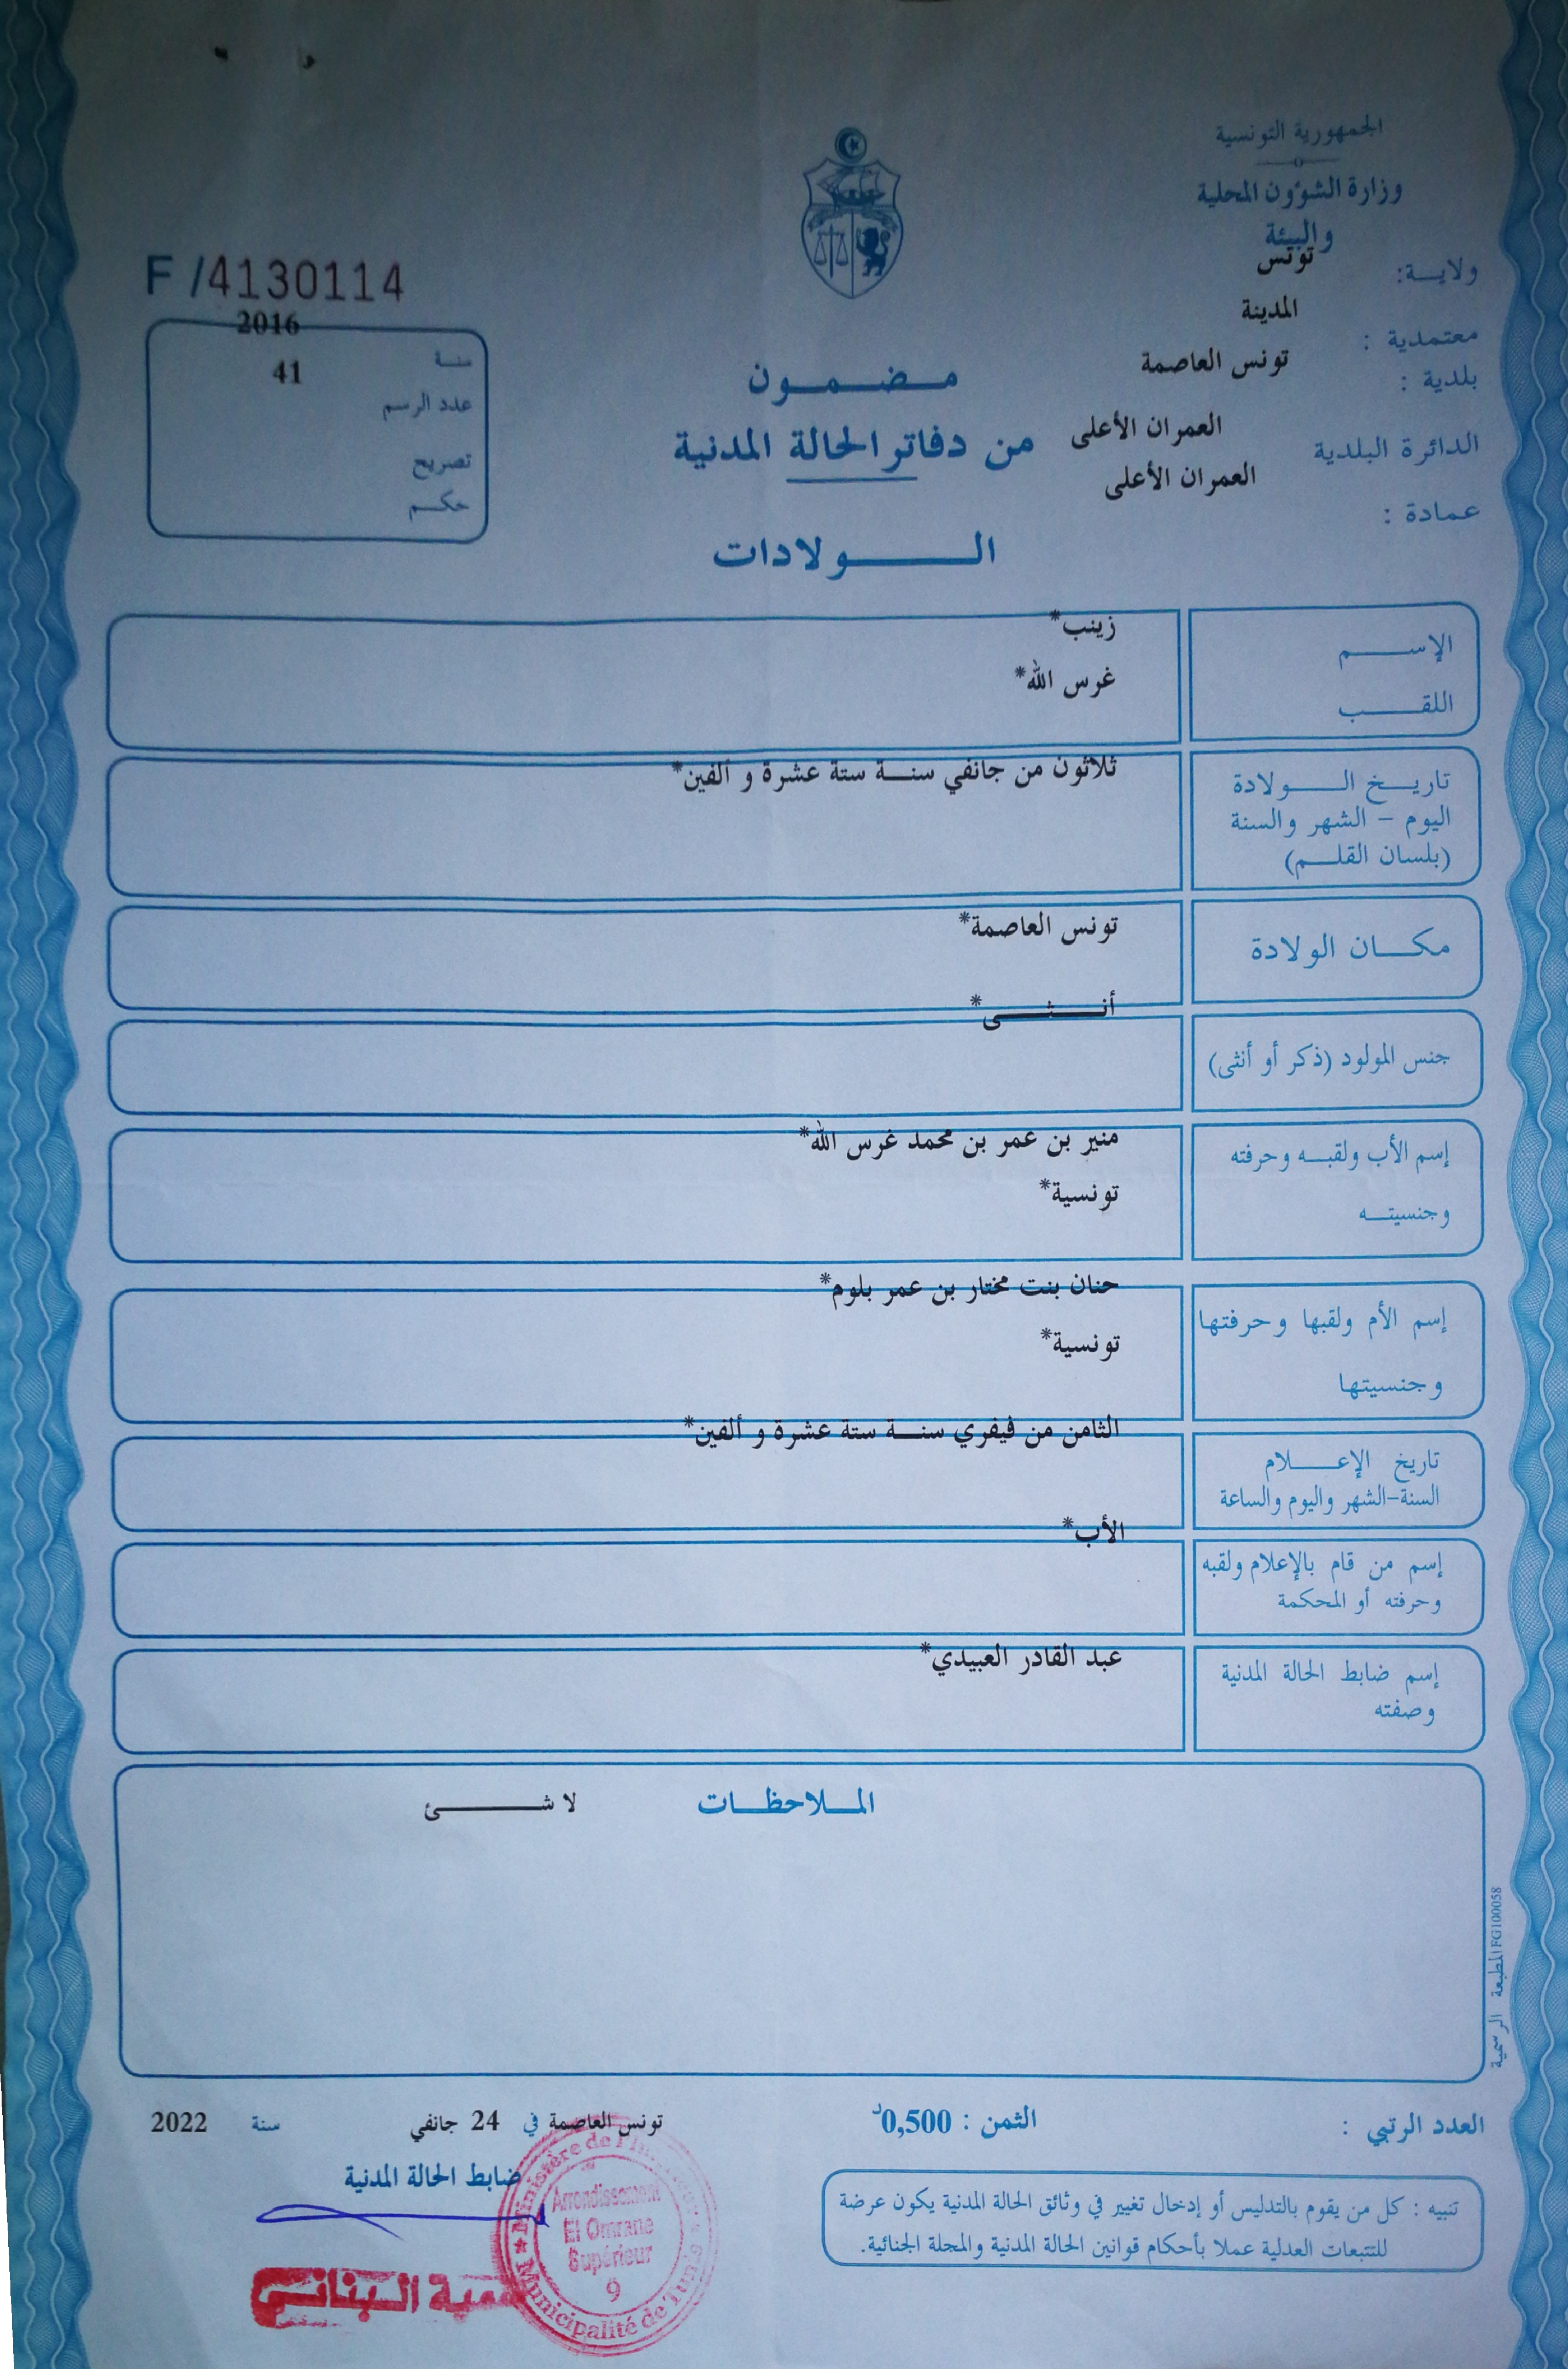 الجمهورية التونسية
وزارة الشؤون المحلية
والبيئة
ولايـة: تونس
معتمدية : المدينة
بلدية : تونس العاصمة
الدائرة البلدية العمران الأعلى
عمادة : العمران الأعلى
F /4130114
سنة 2016
عدد الرسم 41
تصريح
حكم
مضمون
من دفاتر الحالة المدنية
الولادات
الإسم زينب*
اللقب غرس الله*
تاريخ الولادة ثلاثون من جانفي سنة ستة عشرة و ألفين*
اليوم - الشهر والسنة
(بلسان القلم)
مكان الولادة تونس العاصمة*
جنس المولود (ذكر أو أنثى) أنثى*
إسم الأب ولقبه وحرفته منير بن عمر بن محمد غرس الله*
وجنسيته تونسية*
إسم الأم ولقبها وحرفتها حنان بنت مختار بن عمر بلوم*
وجنسيتها تونسية*
تاريخ الإعلام الثامن من فيفري سنة ستة عشرة و ألفين*
السنة-الشهر واليوم والساعة
إسم من قام بالإعلام ولقبه الأب*
وحرفته أو المحكمة
إسم ضابط الحالة المدنية عبد القادر العبيدي*
وصفته
الملاحظات لا شئ
المطبعة الرسمية FG100058
العدد الرتبي :
الثمن : 0,500د
تونس العاصمة في 24 جانفي سنة 2022
ضابط الحالة المدنية
تنبيه : كل من يقوم بالتدليس أو إدخال تغيير في وثائق الحالة المدنية يكون عرضة
للتتبعات العدلية عملا بأحكام قوانين الحالة المدنية والمجلة الجنائية.
Ministère de
Arrondissement
El Omrane
Supérieur
9
Municipalité de Tunis
البناني